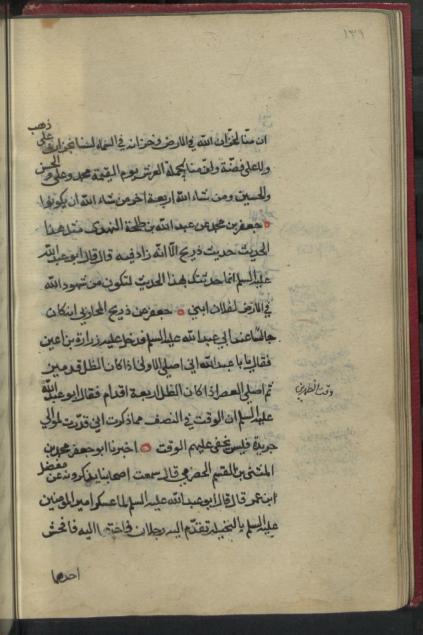 ١٣٩
ان منا لخزان الله في الارض وخزانه في السماء لسنا بخزان على ذهب
ولا على فضة وان منا لحملة العرش يوم القيمة محمد وعلي والحسن
والحسين ومن شاء الله اربعة اخر من شاء الله ان يكونوا
جعفر بن محمد عن عبد الله بن طلحة النهدي مثل هذا
الحديث حديث ذريح الا انه زاد فيه قال قال ابو عبد الله
عليه السلم انما حدثتك بهذا الحديث لتكون من شهود الله
في الارض لفلان ابني جعفر عن ذريح المحاربي انه كان
جالسا عند ابي عبد الله عليه السلم فدخل عليه زرارة بن اعين
فقال يا با عبد الله اني اصلي الاولى اذا كان الظل قدمين
ثم اصلي العصر اذا كان الظل اربعة اقدام فقال ابو عبد الله
عليه السلم ان الوقت في النصف مما ذكرت اني قدرت لموالي
جريدة فليس يخفى عليهم الوقت اخبرنا ابو جعفر محمد بن
المثنى بن القسم الحضرمي قال سمعت اصحابنا يذكرونه عن مفضل
ابن عمر قال قال ابو عبد الله عليه السلم لما عسكر امير المؤمنين
عليه السلم بالنخيلة تقدم اليه رجلان في اختصما اليه فافحش
احدهما
وقت الظهرين